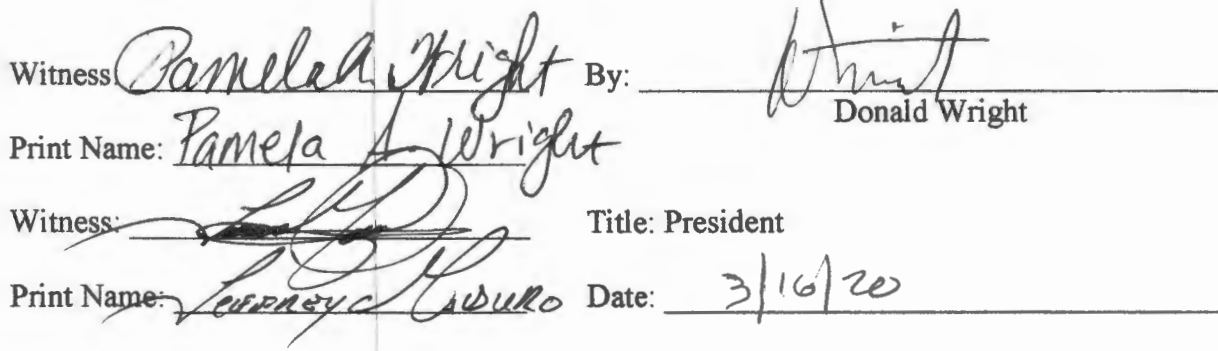 Witness: Pamela A. Wright By:
Donald Wright
Print Name: Pamela A. Wright
Witness: Title: President
Print Name: Date: 3/16/20